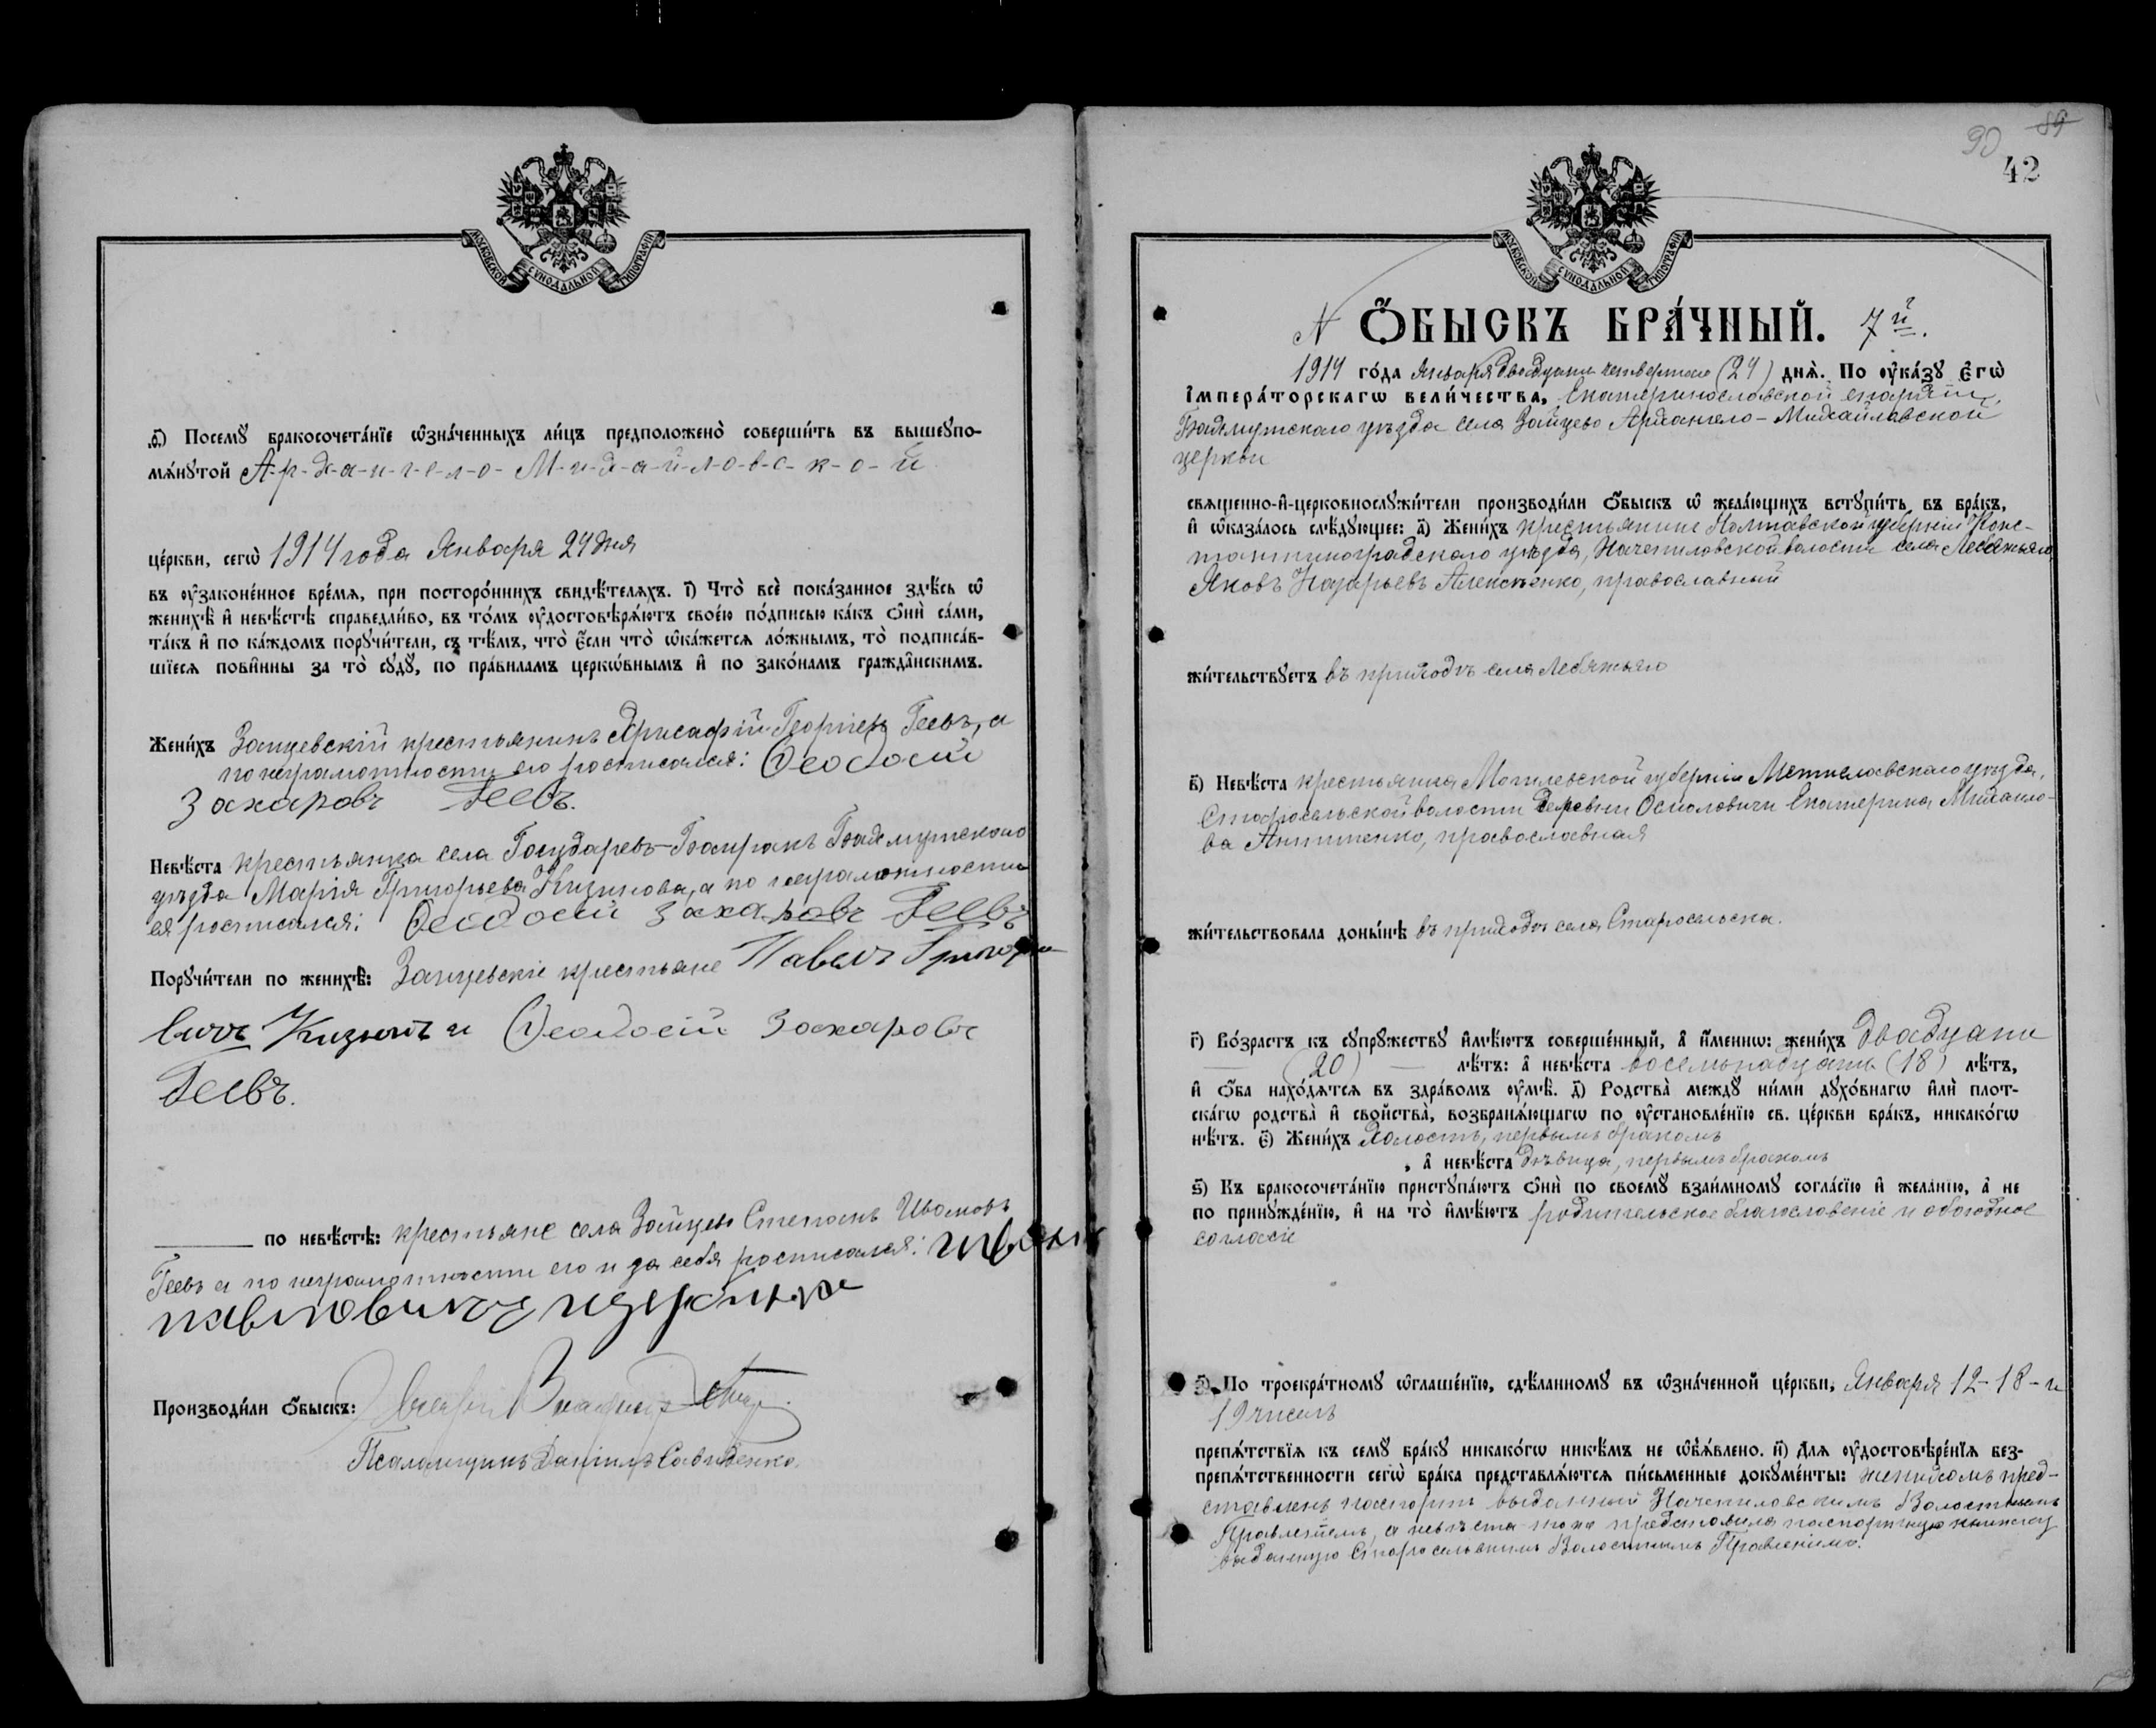 МОСКОВСКОЙ СѴНОДАЛЬНОЙ ТИПОГРАФІИ
Посему бракосочета́нїе ѡ҆зна́ченныхъ ли́цъ предположено̀ соверши́ть въ вышеупо-
мѧ́нутой А-р-х-а-н-г-е-л-о- М-и-х-а-й-л-о-в-с-к-о-й
це́ркви, сегѡ̀ 1914 года Января 24 дня
въ ᲂу҆законе́нное вре́мѧ, при посторо́ннихъ свидѣ́телѧхъ. і҃) Что̀ всѐ пока́занное здѣ́сь ѡ҆
женихѣ̀ и҆ невѣ́стѣ справедли́во, въ то́мъ ᲂу҆достовѣрѧ́ютъ свое́ю по́дписью ка́къ ѻ҆нѝ са́ми,
та́къ и҆ по ка́ждомъ поручи́тели, съ тѣ́мъ, что̀ є҆́сли что̀ ѡ҆ка́жетсѧ ло́жнымъ, то̀ подписа́в-
шїесѧ пови́нны за то̀ суду̀, по пра́виламъ церко́внымъ и҆ по зако́намъ гражда́нскимъ.
Жени́хъ Зайцевскій крестьянинъ Хрисафій Георгіевъ Геевъ, а
по неграмотности его росписался: Ѳеодосій
Захаровъ Геевъ.
Невѣ́ста крестьянка села Государевъ-Байракъ Бахмутскаго
уѣзда Марія Григорьева Кизимова, а по неграмотности
ея росписался: Ѳеодосій Захаровъ Геевъ
Поручи́тели по женихѣ̀: Зайцевскіе крестьяне Павелъ Григорье
вичъ Кизимъ и Ѳеодосій Захаровъ
Геевъ.
по невѣ́стѣ: крестьяне села Зайцево Степанъ Ивановъ
Геевъ а по неграмотности его и за себя росписался: иванъ
павловичъ
Производи́ли ѻ҆́быскъ:
Псаломщикъ Даніилъ
90 89
42
МОСКОВСКОЙ СѴНОДАЛЬНОЙ ТИПОГРАФІИ
N Ѻ҆́БЫСКЪ БРА́ЧНЫЙ. 7й.
1914 го́да Января двадцать четвертаго (24) днѧ̀. По ᲂу҆ка́зу Є҆гѡ̀
І҆мпера́торскагѡ вели́чества, Екатеринославской епархіи,
Бахмутскаго уѣзда села Зайцево Архангело-Михайловской
церкви
свѧщенно-и҆-церковнослужи́тели производи́ли ѻ҆́быскъ ѡ҆ жела́ющихъ вступи́ть въ бра́къ,
и҆ ѡ҆каза́лось слѣ́дующее: а҃) Жени́хъ крестьянинъ Полтавской губерніи Конс-
тантиноградскаго уѣзда, Начепиловской волости села Лебяжьяго
Яковъ Назарьевъ Алексѣенко, православный
жи́тельствуетъ въ приходѣ села Лебяжьяго
в҃) Невѣ́ста крестьянка Могилевской губерніи Мстиславскаго уѣзда,
Старосельской волости деревни Осмоловичи Екатерина Михайло-
ва, православная
жи́тельствовала доны́нѣ въ приходѣ села Старосельска.
г҃) Во́зрастъ къ супру́жеству и҆мѣ́ютъ соверше́нный, а҆ и҆́меннѡ: жени́хъ двадцати
(20) лѣ́тъ: а҆ невѣ́ста восемьнадцати (18) лѣ́тъ,
и҆ ѻ҆́ба нахо́дѧтсѧ въ здра́вомъ ᲂу҆мѣ̀. д҃) Родства̀ между ни́ми духо́внагѡ и҆лѝ плот-
ска́гѡ родства̀ и҆ сво́йства̀, возбранѧ́ющагѡ по ᲂу҆становле́нїю св. це́ркви бра́къ, никако́гѡ
нѣ́тъ. є҃) Жени́хъ холостъ, первымъ бракомъ
, а҆ невѣ́ста дѣвица, первымъ бракомъ
ѕ҃) Къ бракосочета́нїю приступа́ютъ ѻ҆нѝ по своему̀ взаи́мному согла́сїю и҆ жела́нїю, а҆ не
по принужде́нїю, и҆ на то̀ и҆мѣ́ютъ родительское благословеніе и обоюдное
согласіе
з҃) По троекра́тному ѡ҆глаше́нїю, сдѣ́ланному въ ѡ҆зна́ченной це́ркви, Января 12-18-и
19 чиселъ
препѧ́тствїѧ къ сему̀ бра́ку никако́гѡ никѣ́мъ не ѡ҆б̾ѧ́влено. и҃) Длѧ ᲂу҆достовѣре́нїѧ без-
препѧ́тственности сегѡ̀ бра́ка представлѧ́ютсѧ пи́сьменные докуме́нты: женихомъ пред-
ставленъ паспортъ выданный Начепиловскимъ Волостнымъ
Правленіемъ, а невѣста представила паспортную книжку
выданную Старосельскимъ Волостнымъ Правленіемъ.